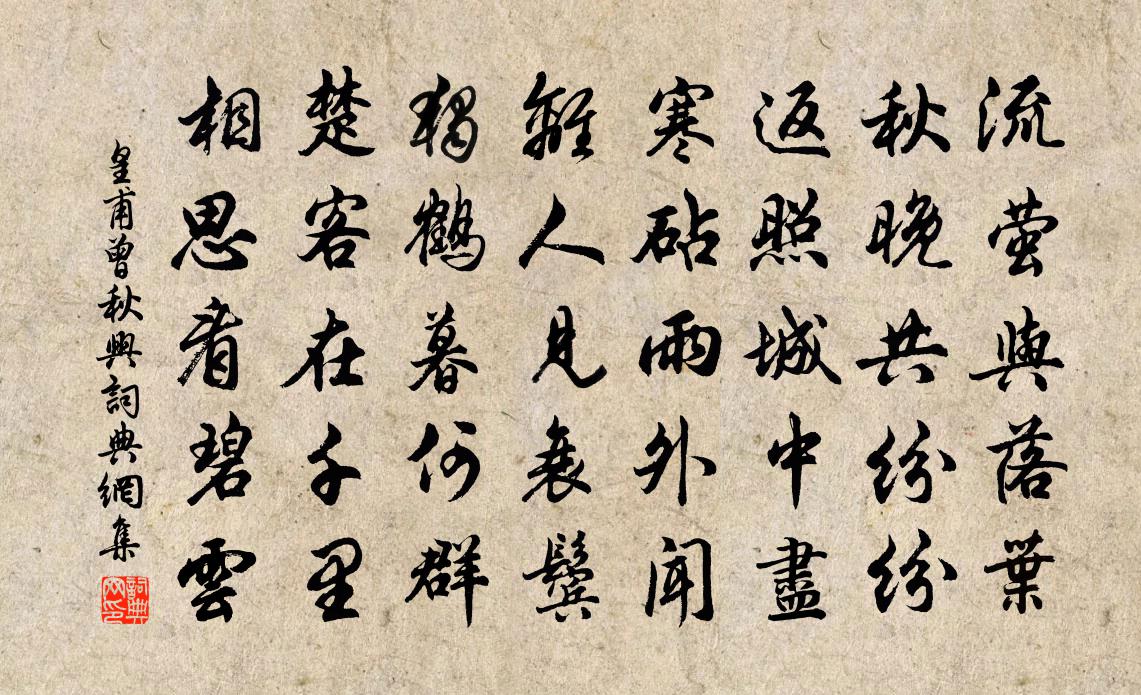 流萤與落葉
秋晚共紛紛
返照城中盡
寒砧雨外聞
離人見衰鬢
獨鶴暮何群
楚客在千里
相思看碧雲
皇甫曾秋興詞典網集
詞典網印